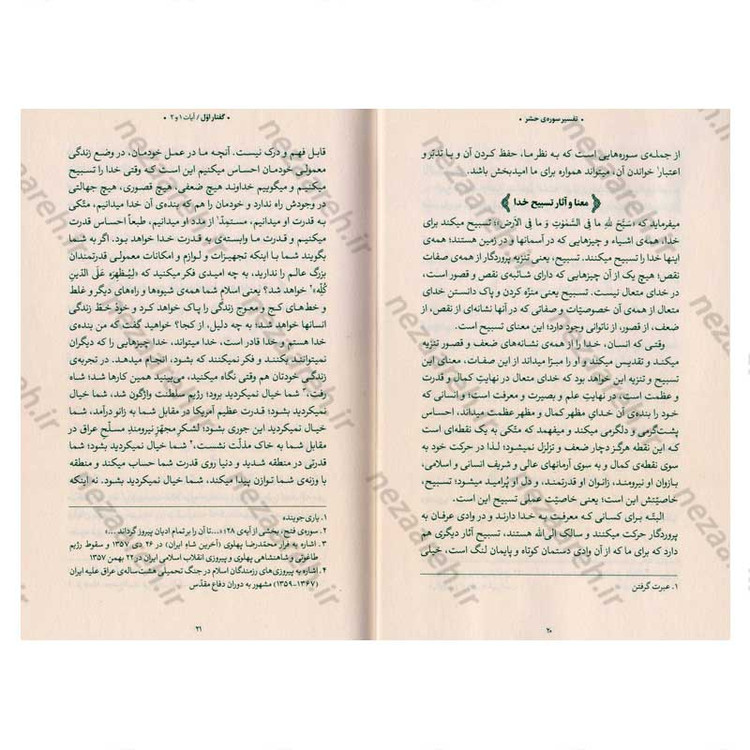 • تفسیر سوره‌ی حشر •
از جمله‌ی سوره‌هایی است که به نظر ما، حفظ کردن آن و با تدبّر و
اعتبار۱ خواندن آن، میتواند همواره برای ما امیدبخش باشد.
معنا و آثار تسبیح خدا
میفرماید که «سَبَّحَ لِلّٰهِ ما فِی السَّمٰوٰتِ وَ ما فِی الاَرضِ»؛ تسبیح میکند برای
خدا، همه‌ی اشیاء و چیزهایی که در آسمانها و در زمین هستند؛ همه‌ی
اینها خدا را تسبیح میکنند. تسبیح، یعنی تنزیه پروردگار از همه‌ی صفات
نقص؛ هیچ یک از آن چیزهایی که دارای شائبه‌ی نقص و قصور است،
در خدای متعال نیست. تسبیح یعنی منزّه کردن و پاک دانستن خدای
متعال از همه‌ی آن خصوصیّات و صفاتی که در آنها نشانه‌ای از نقص، از
ضعف، از قصور، از ناتوانی وجود دارد؛ این معنای تسبیح است.
وقتی که انسان، خدا را از همه‌ی نشانه‌های ضعف و قصور تنزیه
میکند و تقدیس میکند و او را مبرّا میداند از این صفات، معنای این
تسبیح و تنزیه این خواهد بود که خدای متعال در نهایتِ کمال و قدرت
و عظمت است، در نهایتِ علم و بصیرت و معرفت است؛ و انسانی که
خود را بنده‌ی آن خدایِ مظهر کمال و مظهر عظمت میداند، احساس
پشت‌گرمی و دلگرمی میکند و میفهمد که متّکی به یک نقطه‌ای است
که این نقطه هرگز دچار ضعف و تزلزل نمیشود؛ لذا در حرکت خود به
سوی نقطه‌ی کمال و به سوی آرمانهای عالی و شریف انسانی و اسلامی،
بازوان او نیرومند، زانوان او قدرتمند، و دل او پُرامید میشود؛ تسبیح،
خاصّیّتش این است؛ یعنی خاصّیّت عملی تسبیح این است.
البتّه برای کسانی که معرفت به خدا دارند و در وادی عرفان به
پروردگار حرکت میکنند و سالک الی‌اللّٰه هستند، تسبیح آثار دیگری هم
دارد که برای ما که از آن وادی دستمان کوتاه و پایمان لنگ است، خیلی
۱. عبرت گرفتن
۲۰
• گفتار اوّل / آیات ۱ و ۲ •
قابل فهم و درک نیست. آنچه ما در عمل خودمان، در وضع زندگی
معمولی خودمان احساس میکنیم این است که وقتی خدا را تسبیح
میکنیم و میگوییم خداوند هیچ ضعفی، هیچ قصوری، هیچ جهالتی
در وجودش راه ندارد و خودمان را هم که بنده‌ی آن خدا میدانیم، متّکی
به قدرت او میدانیم، مستمدّ۱ از مدد او میدانیم، طبعاً احساس قدرت
میکنیم و قدرت ما وابسته‌ی به قدرت خدا خواهد بود. اگر به شما
بگویند شما با اینکه تجهیزات و لوازم و امکانات معمولی قدرتمندان
بزرگ عالم را ندارید، به چه امیدی فکر میکنید که «لِیُظهِرَهُ عَلَی الدّینِ
کُلِّه»۲ خواهد شد؟ یعنی اسلام شما همه‌ی شیوه‌ها و راه‌های دیگر و غلط
و خط‌های کج و معوج زندگی را پاک خواهد کرد و خودْ خطّ زندگی
انسانها خواهد شد؛ به چه دلیل، از کجا؟ خواهید گفت که من بنده‌ی
خدا هستم و خدا قادر است، خدا میتواند، خدا چیزهایی را که دیگران
نمیتوانند بکنند و فکر نمیکنند که بشود، انجام میدهد. در تجربه‌ی
زندگی خودتان هم وقتی نگاه میکنید، می‌بینید همین کارها شد؛ شاه
رفت،۳ شما خیال نمیکردید برود؛ رژیم سلطنت واژگون شد، شما خیال
نمیکردید بشود؛ قدرت عظیم آمریکا در مقابل شما به زانو درآمد، شما
خیال نمیکردید این جوری بشود؛ لشکر مجهّز نیرومندِ مسلّح عراق در
مقابل شما به خاک مذلّت نشست،۴ شما خیال نمیکردید بشود؛ شما
قدرتی در منطقه شدید و دنیا روی قدرت شما حساب میکند و منطقه
با وزنه‌ی شما توازن پیدا میکند، شما خیال نمیکردید بشود. نه اینکه
۱. یاری‌جوینده
۲. سوره‌ی فتح، بخشی از آیه‌ی ۲۸؛ «...تا آن را بر تمام ادیان پیروز گرداند...»
۳. اشاره به فرار محمّدرضا پهلوی (آخرین شاه ایران) در ۲۶ دی ۱۳۵۷ و سقوط رژیم
طاغوتی و شاهنشاهی پهلوی و پیروزی انقلاب اسلامی ایران در ۲۲ بهمن ۱۳۵۷
۴. اشاره به پیروزی‌های رزمندگان اسلام در جنگ تحمیلی هشت‌ساله‌ی عراق علیه ایران
(۱۳۶۷-۱۳۵۹) مشهور به دوران دفاع مقدّس
۲۱
nezaareh.ir